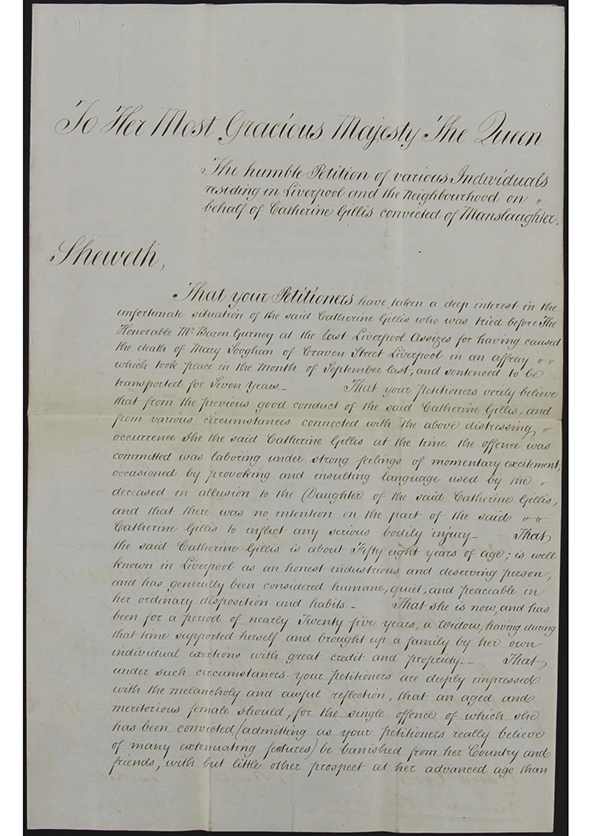 To Her Most Gracious Majesty The Queen
The humble Petition of various Individuals
residing in Liverpool and the Neighbourhood on "
behalf of Catherine Gillis convicted of Manslaughter.
Sheweth,
That your Petitioners have taken a deep interest in the
unfortunate situation of the said Catherine Gillis who was tried before The
Honorable Mr Baron Gurney at the last Liverpool Assizes for having caused
the death of Mary of Craven Street Liverpool in an affray
which took place in the Month of September last, and sentenced to be
transported for Seven Years_ That your Petitioners verily believe
that from the previous good conduct of the said Catherine Gillis, and
from various circumstances connected with the above distressing,
occurrence She the said Catherine Gillis at the time the offence was
committed was laboring under strong feelings of momentary excitement,
occasioned by provoking and insulting language used by the
deceased in allusion to the Daughter of the said Catherine Gillis,
and that there was no intention on the part of the said
Catherine Gillis to inflict any serious bodily injury_ That
the said Catherine Gillis is about Fifty eight years of age; is well
known in Liverpool as an honest industrious and deserving person,
and has generally been considered humane, quiet, and peaceable in
her ordinary disposition and habits._ That she is now, and has
been for a period of nearly Twenty five years, a Widow, having during
that time supported herself and brought up a family by her own
individual exertions with great credit and propriety._ That,
under such circumstances your petitioners are deeply impressed
with the melancholy and awful reflection, that an aged and
meritorious female should, for the single offence of which she
has been convicted (admitting as your petitioners really believe
of many extenuating features) be banished from her Country and
friends, with but little other prospect at her advanced age than